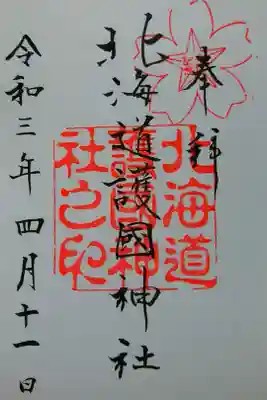 奉拝
北海道護國神社
北海道
護國神
社之印
令和三年四月十一日